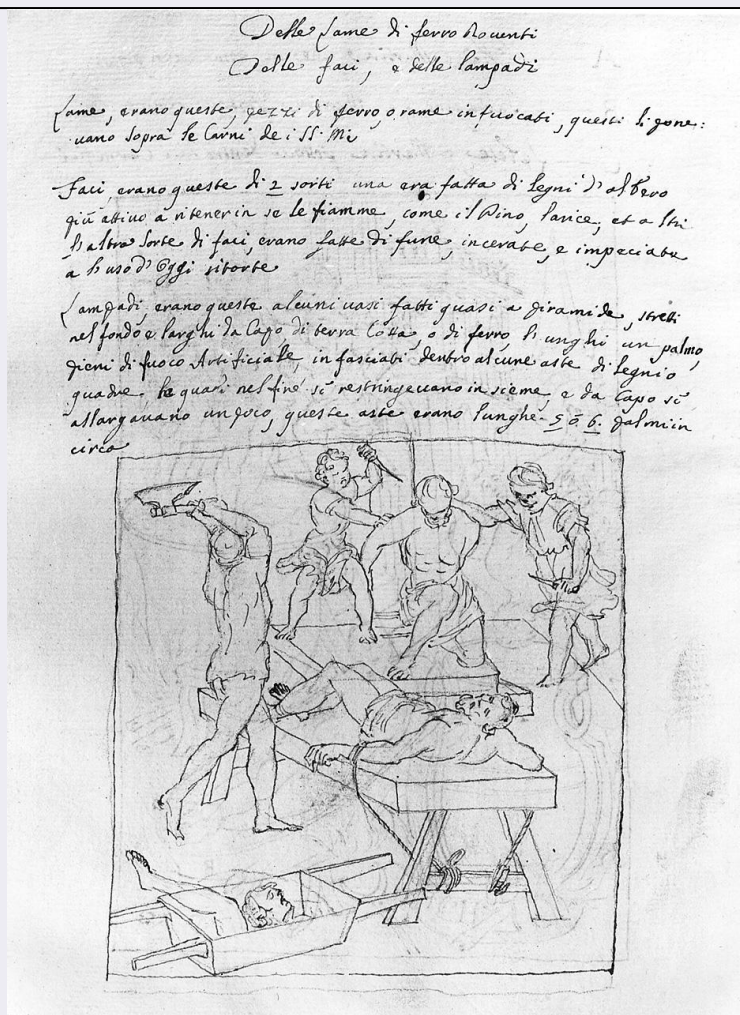 Delle Lame di ferro Roventi
Delle faci, e delle lampadi
Lame, erano queste, pezzi di ferro, o rame infuocati, questi li pone:
vano sopra le Carni de i SS. Mi
Faci, erano queste di 2 sorti una era fatta di Legni d'albero
più attivo a ritener in se le fiamme, come il Pino, larice, et altri
l'altra sorte di faci, erano fatte di fune, incerate, e impeciate
a l'uso d'Oggi ritorte
Lampadi, erano queste alcuni vasi fatti quasi a piramide, stretti
nel fondo e larghi da Capo di terra Cotta, o di ferro, lunghi un palmo,
pieni di fuoco Artificiale, in fasciati dentro alcune aste di Legnio
quadre, le quari nel fine si restringevano in sieme, e da Capo si
allargavano un poco, queste aste erano lunghe 5 ó 6. palmi in
circa